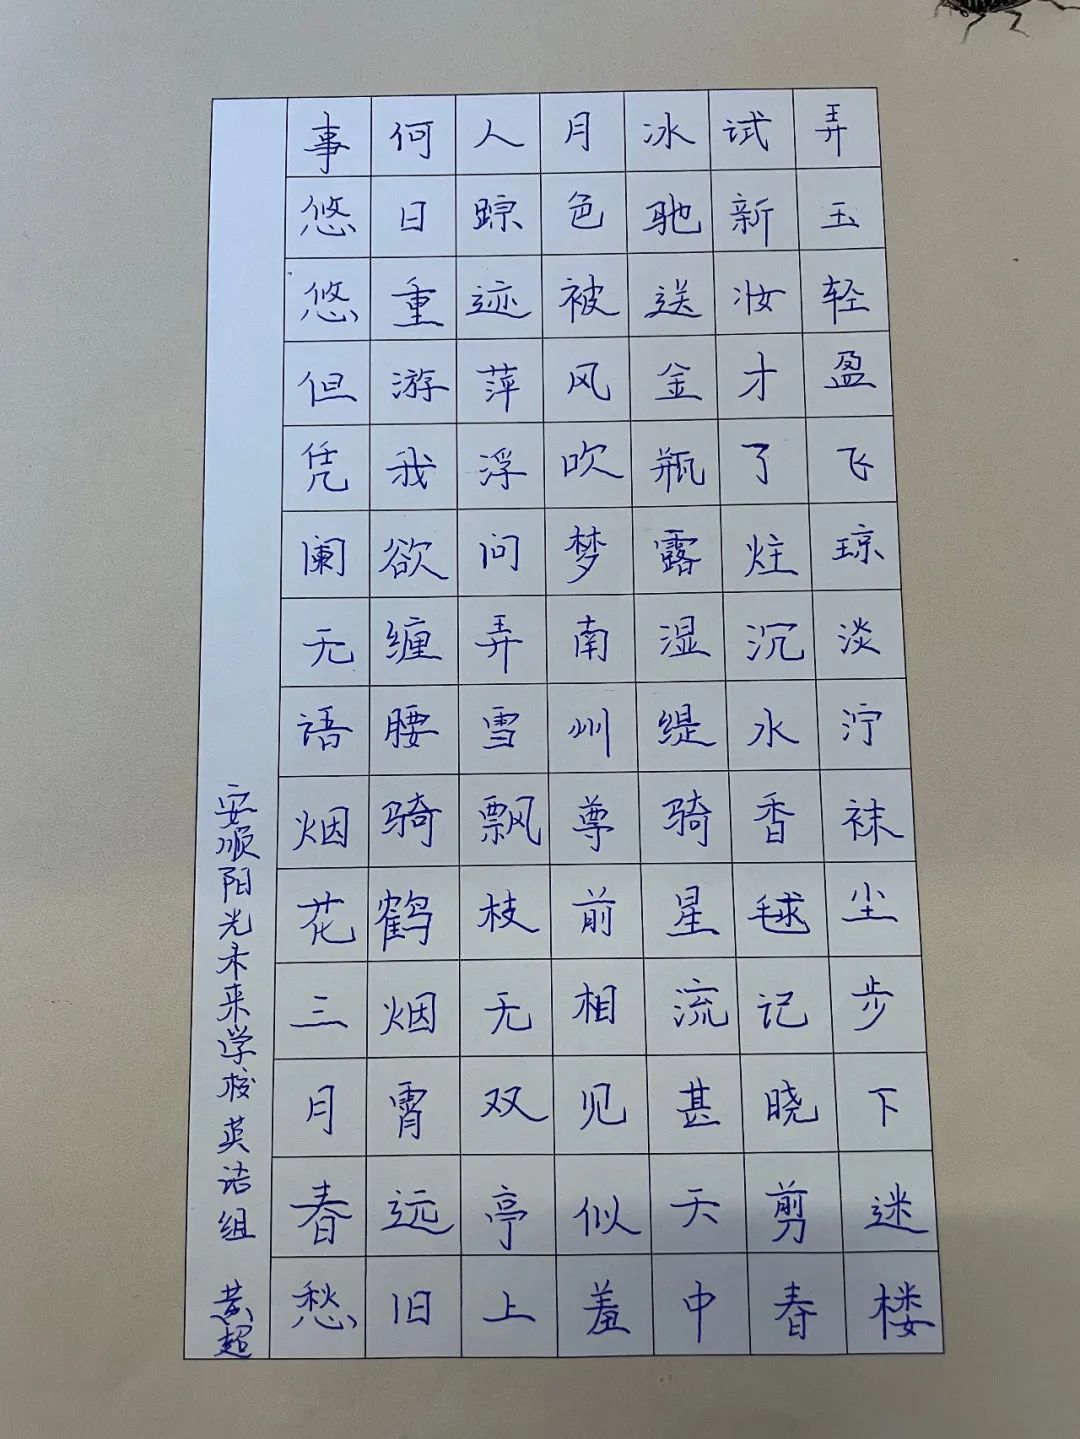 弄玉轻盈飞琼淡泞袜尘步下迷楼
试新妆才了炷沉水香毬记晓剪春
冰驰送金瓶露湿缇骑星流甚天中
月色被风吹梦南州尊前相见似羞
人踪迹萍浮问弄雪飘枝无双亭上
何日重游我欲缠腰骑鹤烟霄远旧
事悠悠但凭阑无语烟花三月春愁
安顺阳光未来学校英语组 黄超